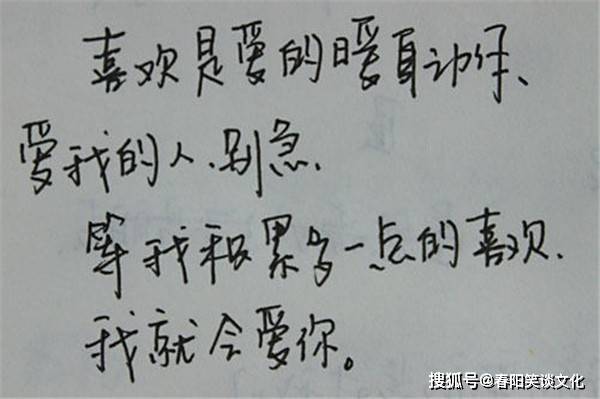 喜欢是爱的暖身动作、
爱我的人.别急.
等我积累多一点的喜欢.
我就会爱你。
搜狐号@春阳笑谈文化